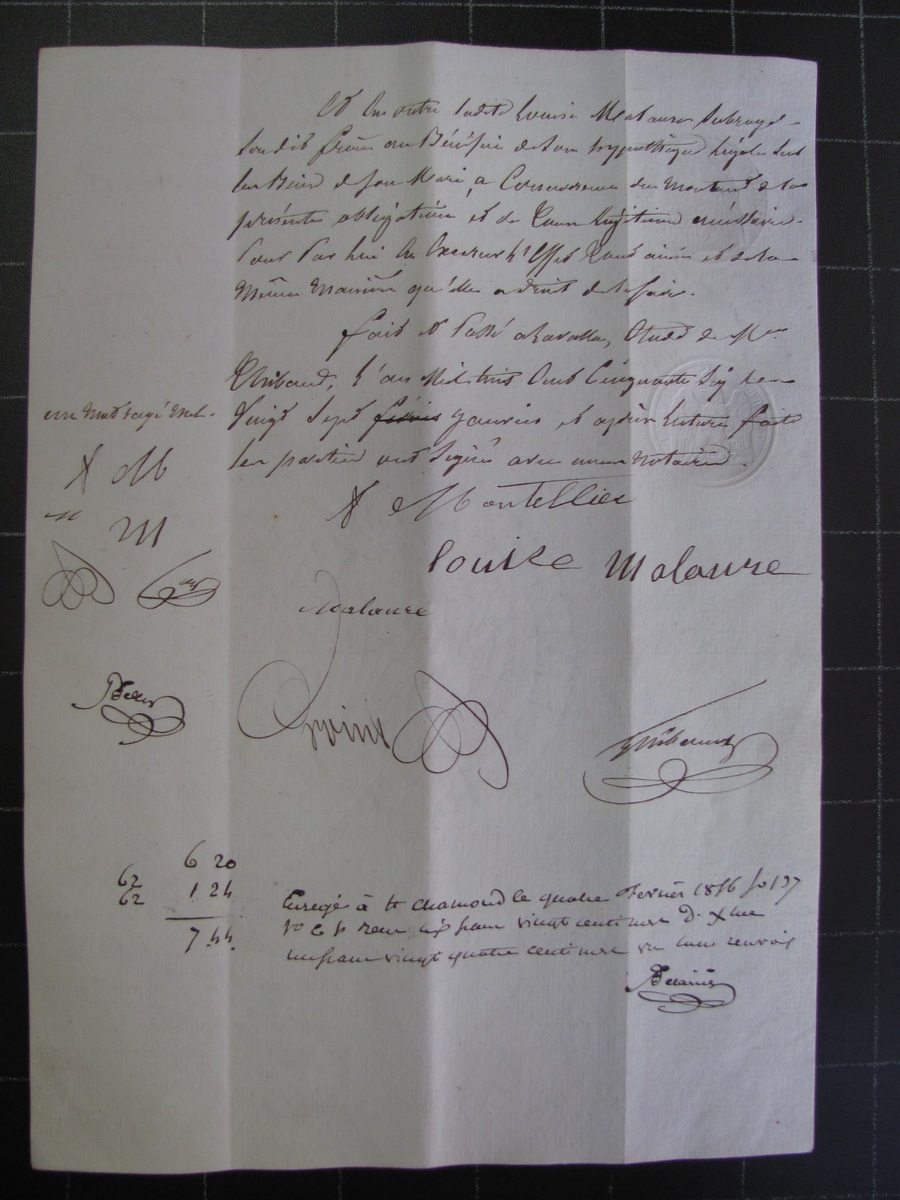 Et En outre ladite Louise Malaure subroge
ledit frère au Bénéfice de son hypothèque légale sur
les Biens de son Mari, a Concurrence du Montant de la
présente obligation et de tous légitimes accessoires
Pour Par lui En Exercer l'Effet tout ainsi et de la
Même Manière qu'elle a droit de le faire.
fait et Passé a Lavalla, Etude de Me
Thibaud, l'an Mil huit Cent Cinquante Six le
Vingt Sept fevrie janvier, et après lecture faite
les parties ont Signé avec nous Notaire.
un mot rayé nul.
X M
M
X Montellier
Louise Malaure
Malaure
Point
Thibaud
6 20
62 1 24
62
7 44
Enregé à St chamond le quatre Février 1856 fo 137
vo C 1 reçu six francs vingt centimes D. Xme
un franc vingt quatre centimes un renvoi